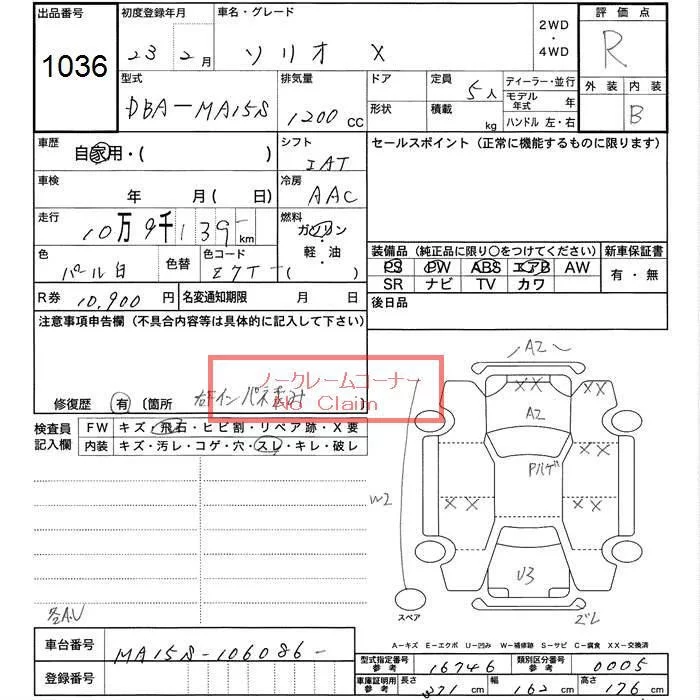 出品番号 初度登録年月 車名・グレード 2WD・4WD 評価点
1036 23年 2月 ソリオ X R
型式 排気量 ドア 定員 ディーラー・並行 外装 内装
DBA-MA15S 1200CC 形状 積載 kg 5人 モデル年式 年 ハンドル 左・右 B
車歴 自家用・( ) シフト IAT セールスポイント (正常に機能するものに限ります)
車検 年 月( 日) 冷房 AAC
走行 10万9千139-km 燃料 ガソリン・軽・油( )
色 パール白 色替 色コード Z7T-
装備品 (純正品に限り○をつけてください) 新車保証書
PS PW ABS エアB AW 有・無
SR ナビ TV カワ
R券 10,900円 名変通知期限 月 日 後日品
注意事項申告欄 (不具合内容等は具体的に記入して下さい)
ノークレームコーナー
No Claim
修復歴 有 〔箇所 右インパネ
検査員記入欄 FW キズ・飛石・ヒビ割・リペア跡・X要
内装 キズ・汚レ・コゲ・穴・スレ・キレ・破レ
A2
XX XX
A2
Pハゲ XX
W2 XX XX
U3
スペア
A-キズ E-エクボ U-凹み W-補修跡 S-サビ C-腐食 XX-交換済
車台番号 MA15S-106086-
登録番号
型式指定番号参考 16746 類別区分番号参考 0005
車庫証明用参考 長さ 371cm 幅 162cm 高さ 176cm